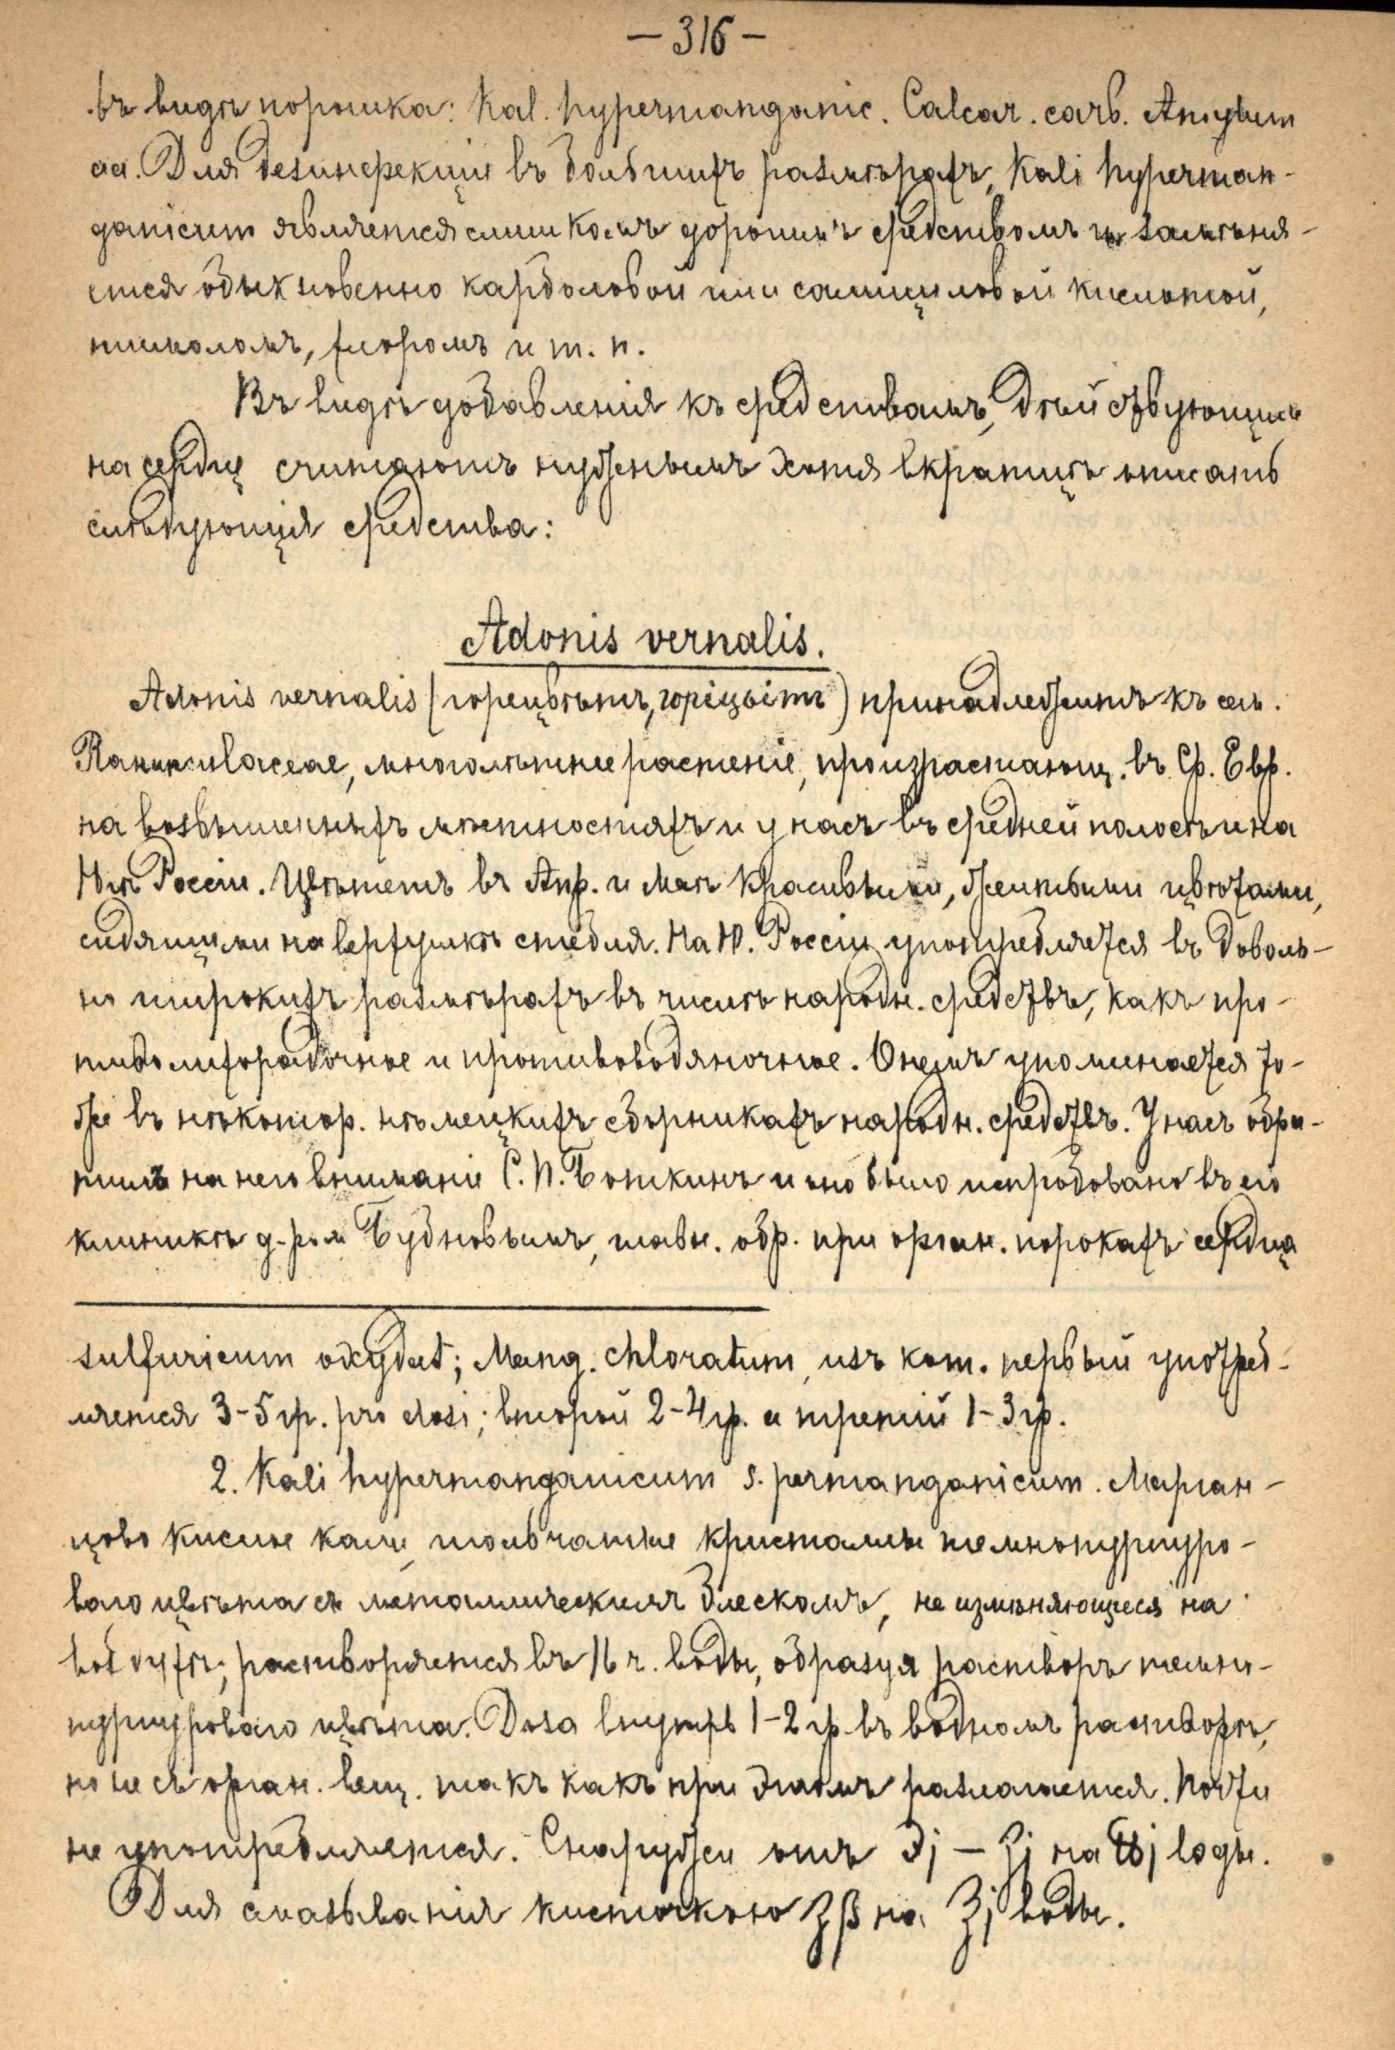 — 316 —
въ видѣ порошка: Kal. hypermanganic. Calcar. carb. Amylum
aa. Для дезинфекціи въ большихъ размѣрахъ, Kali hyperman-
ganicum является слишкомъ дорогимъ средствомъ и замѣня-
ется обыкновенно карболовой или салициловой кислотой,
тимоломъ, хлоромъ и т. п.
Въ видѣ добавленія къ средствамъ, дѣйствующимъ
на сердце считаютъ нужнымъ хотя вкратцѣ описать
слѣдующія средства:
Adonis vernalis.
Adonis vernalis (горецвѣтъ, горіцвітъ) принадлежитъ къ сем.
Ranunculaceae, многолѣтнее растеніе, произрастающ. въ Ср. Евр.
на возвышенныхъ мѣстностяхъ и у насъ въ средней полосѣ и на
Югѣ Россіи. Цвѣтетъ въ Апр. и Маѣ красивыми, желтыми цвѣтами,
сидящими на верхушкѣ стебля. На Ю. Россіи употребляется въ доволь-
но широкихъ размѣрахъ въ числѣ народн. средствъ, какъ про-
тиволихорадочное и противоводяночное. О немъ упоминается то-
же въ нѣкотор. нѣмецкихъ сборникахъ народн. средствъ. У насъ обра-
тилъ на него вниманіе С. П. Боткинъ и оно было испробовано въ его
клиникѣ д-ром Бубновымъ, главн. обр. при орган. порокахъ сердца
sulfuricum oxydat; Mang. chloratum, изъ кот. первый употреб-
ляется 3-5 гр. pro dosi; второй 2-4 гр. а третій 1-3 гр.
2. Kali hypermanganicum s. permanganicum. Марган-
цово кислое кали, игольчатые кристаллы темнопурпуро-
ваго цвѣта съ металлическимъ блескомъ, не измѣняющіеся на
воздухѣ; растворяется въ 16 ч. воды, образуя растворъ темно-
пурпуроваго цвѣта. Доза внутрь 1-2 гр. въ водномъ растворѣ,
но не съ орган. вещ. такъ какъ при этомъ разлагается. Почти
не употребляется. Снаружи отъ ℈j — ʒj на ℔j воды.
Для смазыванія кисточкою ʒβ на ℥j воды.